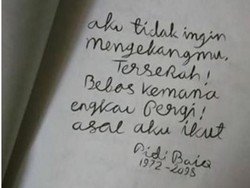 aku tidak ingin
mengekangmu.
Terserah!
Bebas kemana
engkau pergi!
asal aku ikut
Pidi Baiq
1972-2098